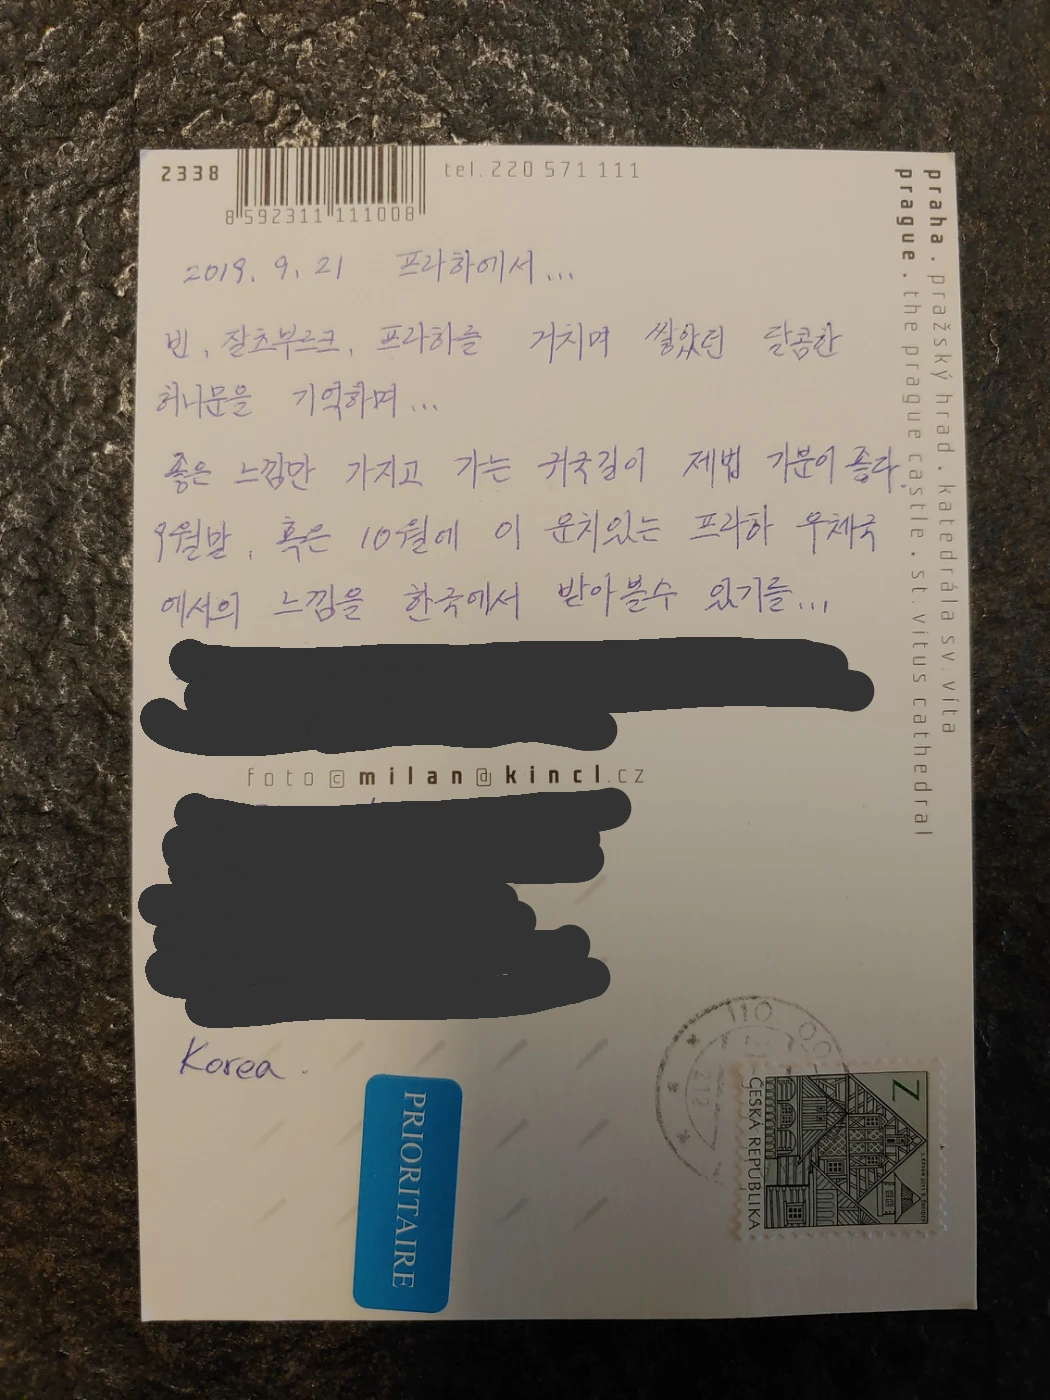 2338
8 592311 111008
tel. 220 571 111
praha . pražský hrad . katedrála sv. víta
prague . the prague castle . st. vitus cathedral
2019. 9. 21 프라하에서...
빈, 잘츠부르크, 프라하를 거치며 쌓았던 달콤한
허니문을 기억하며...
좋은 느낌만 가지고 가는 귀국길이 제법 기분이 좋다.
9월말, 혹은 10월에 이 운치있는 프라하 우체국
에서의 느낌을 한국에서 받아볼수 있기를...
foto © milan@kincl.cz
Korea.
PRIORITAIRE
110 00
Z
ČESKÁ REPUBLIKA